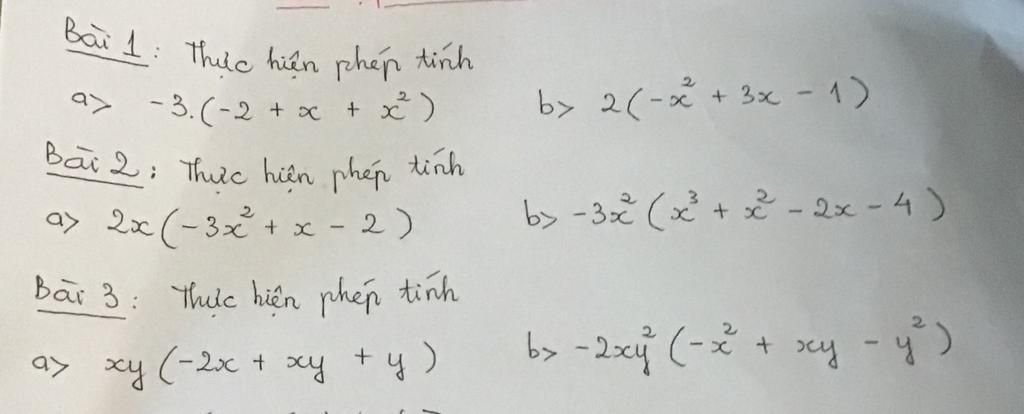 Bài 1: Thực hiện phép tính
a> -3.(-2 + x + x²) b> 2(-x² + 3x - 1)
Bài 2: Thực hiện phép tính
a> 2x(-3x² + x - 2) b> -3x²(x³ + x² - 2x - 4)
Bài 3: Thực hiện phép tính
a> xy(-2x + xy + y) b> -2xy²(-x² + xy - y²)